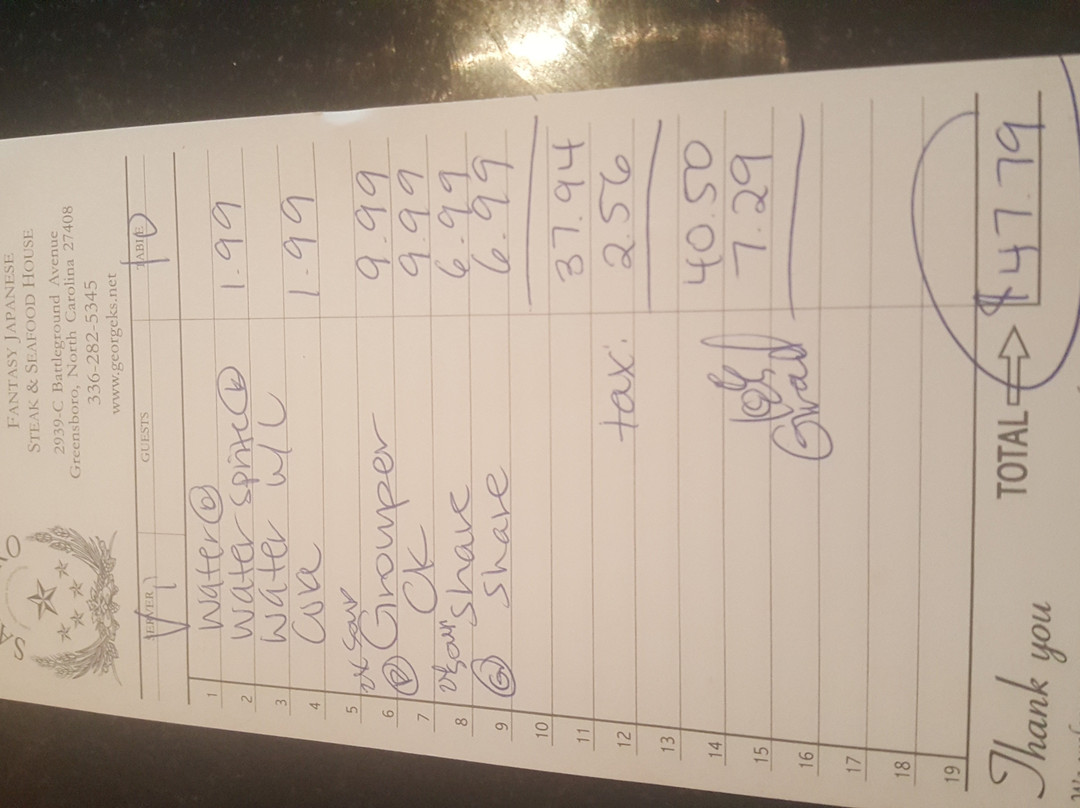 FANTASY JAPANESE
STEAK & SEAFOOD HOUSE
2939-C Battleground Avenue
Greensboro, North Carolina 27408
336-282-5345
www.georgeks.net
SERVER GUESTS TABLE
1 Water (b)
2 Water Sprite (b) 1.99
3 Water W/L
4 1.99
5
6 Grouper 9.99
7 CK 9.99
8 Share 6.99
9 Share 6.99
10
11 37.94
12 tax: 2.56
13
14 40.50
15 18% 7.29
16 Grat
17
18
19
Thank you TOTAL $47.79